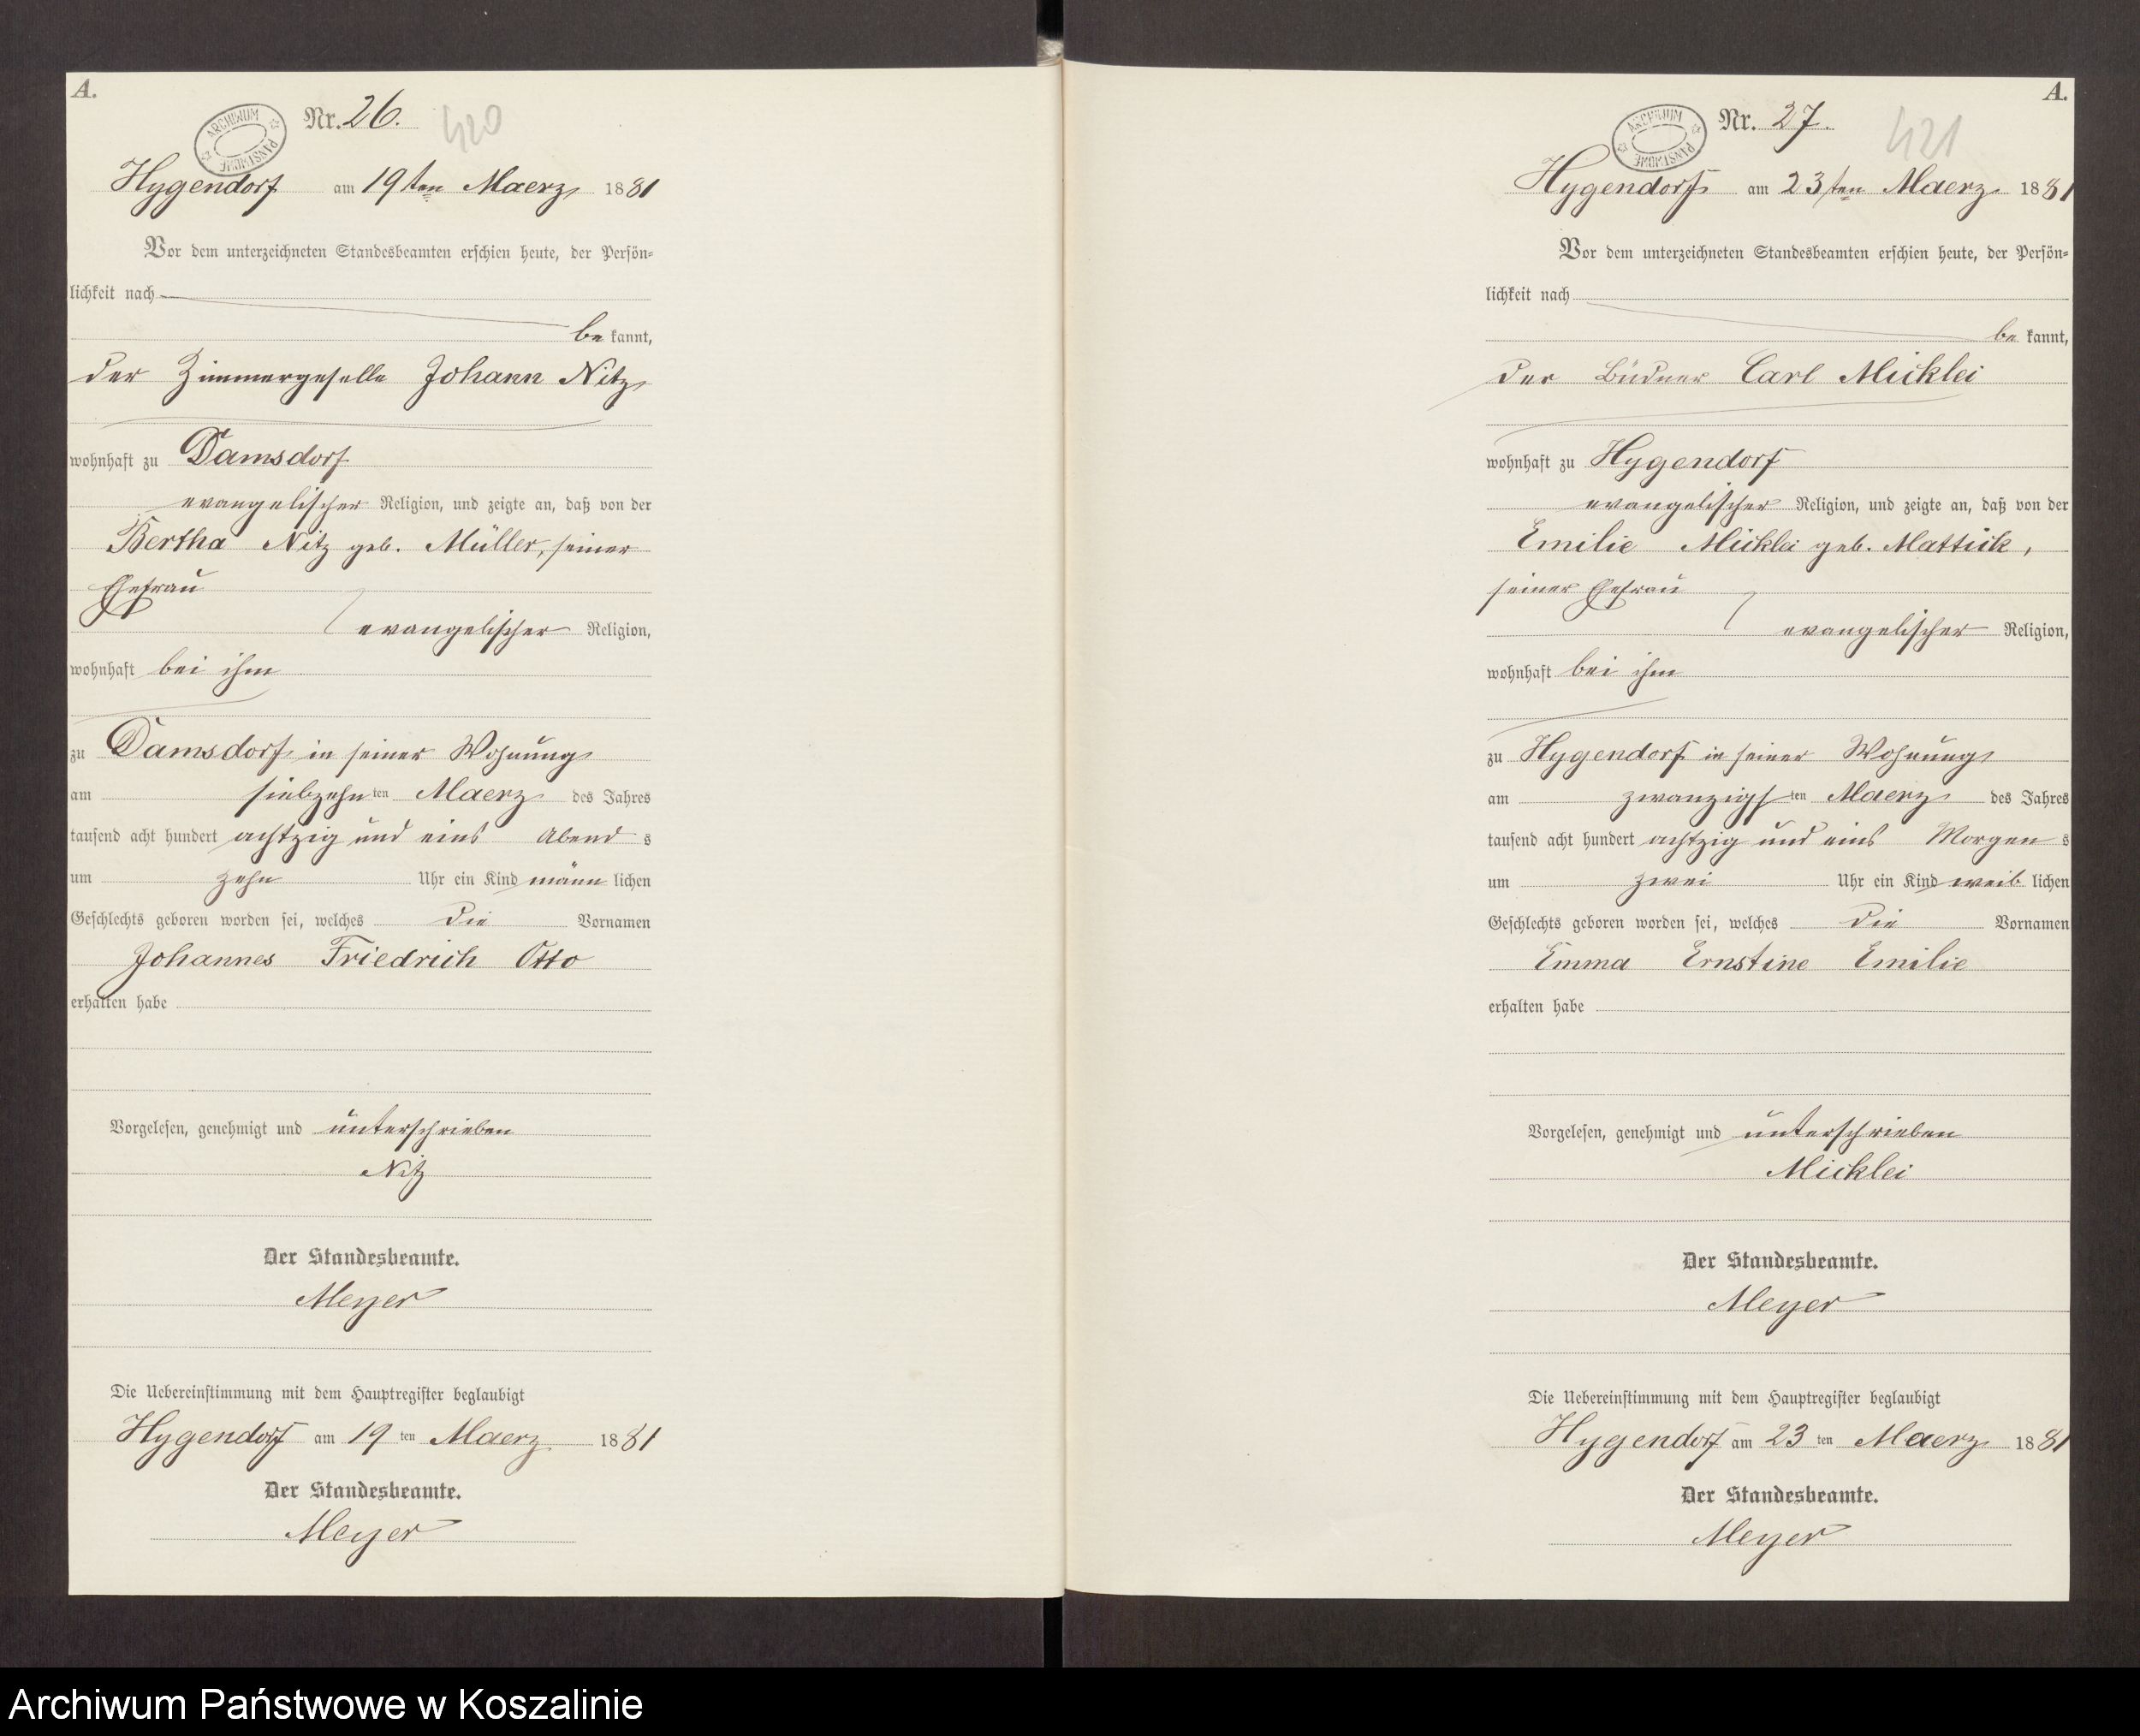 A.
ARCHIWUM PAŃSTWOWE
Nr. 26.
420
Hygendorf am 19ten Maerz 1881
Vor dem unterzeichneten Standesbeamten erschien heute, der Persön-
lichkeit nach
be kannt,
der Zimmergeselle Johann Nitz
wohnhaft zu Damsdorf
evangelischer Religion, und zeigte an, daß von der
Bertha Nitz geb. Müller, seiner
Ehefrau
evangelischer Religion,
wohnhaft bei ihm
zu Damsdorf in seiner Wohnung
am siebzehn ten Maerz des Jahres
tausend acht hundert achtzig und eins Abend s
um zehn Uhr ein Kind männ lichen
Geschlechts geboren worden sei, welches die Vornamen
Johannes Friedrich Otto
erhalten habe
Vorgelesen, genehmigt und unterschrieben
Nitz
Der Standesbeamte.
Meyer
Die Uebereinstimmung mit dem Hauptregister beglaubigt
Hygendorf am 19 ten Maerz 1881
Der Standesbeamte.
Meyer
A.
ARCHIWUM PAŃSTWOWE
Nr. 27.
421
Hygendorf am 23ten Maerz 1881
Vor dem unterzeichneten Standesbeamten erschien heute, der Persön-
lichkeit nach
be kannt,
der Büdner Carl Micklei
wohnhaft zu Hygendorf
evangelischer Religion, und zeigte an, daß von der
Emilie Micklei geb. Mattick,
seiner Ehefrau
evangelischer Religion,
wohnhaft bei ihm
zu Hygendorf in seiner Wohnung
am zwanzigs ten Maerz des Jahres
tausend acht hundert achtzig und eins Morgen s
um zwei Uhr ein Kind weib lichen
Geschlechts geboren worden sei, welches die Vornamen
Emma Ernstine Emilie
erhalten habe
Vorgelesen, genehmigt und unterschrieben
Micklei
Der Standesbeamte.
Meyer
Die Uebereinstimmung mit dem Hauptregister beglaubigt
Hygendorf am 23 ten Maerz 1881
Der Standesbeamte.
Meyer
Archiwum Państwowe w Koszalinie